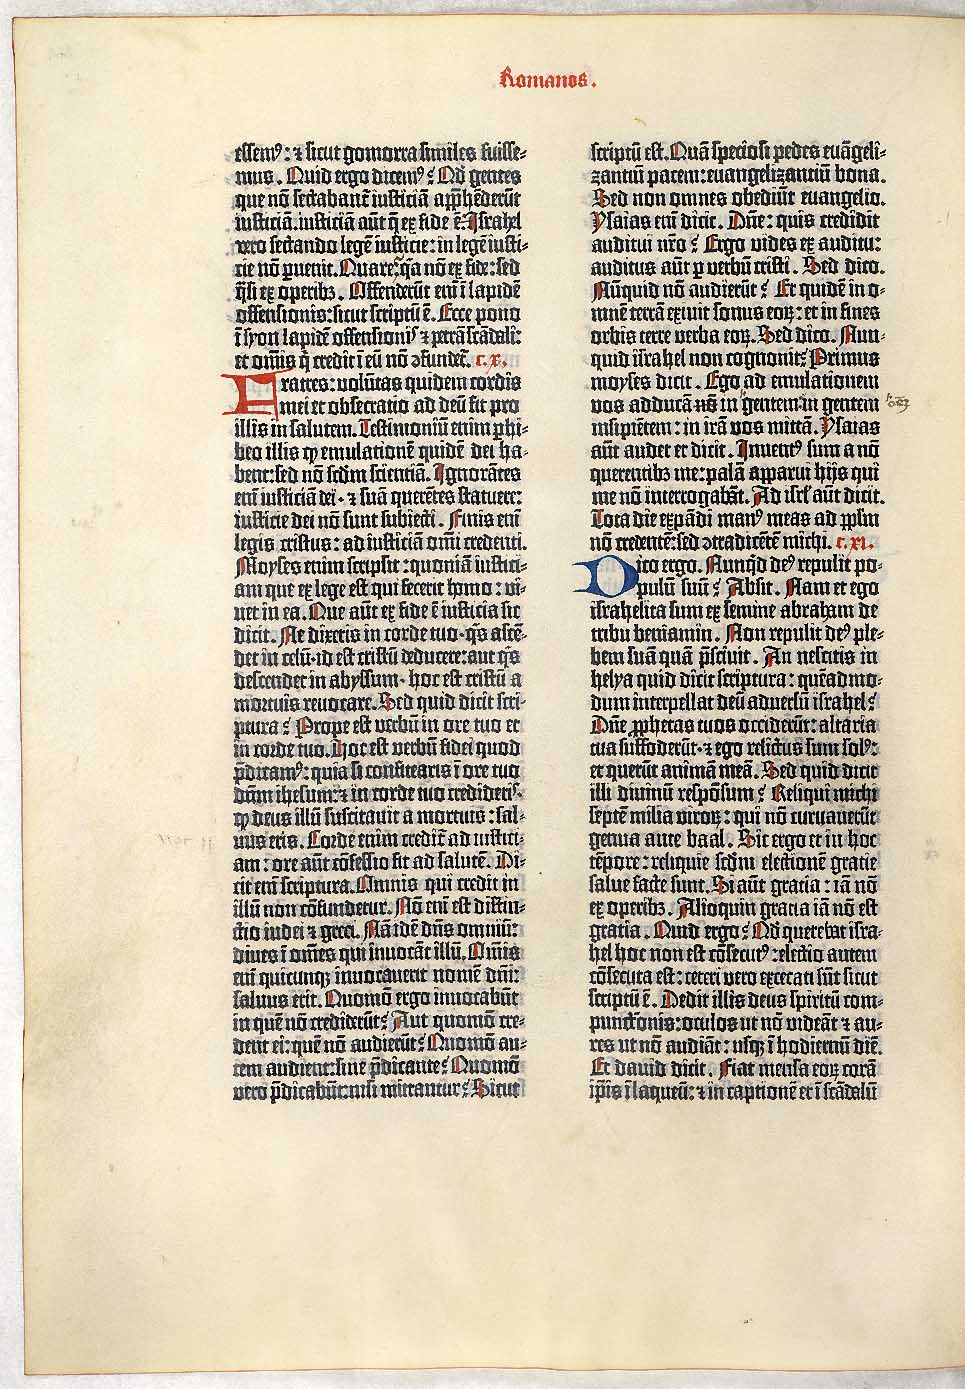 Romanos.
essemꝰ: ⁊ sicut gomorra similes fuisse-
mus. Quid ergo dicemꝰ? Qd̓ gentes
que nō sectabant᷑ iusticiā apꝑhēderūt
iusticiā. iusticiā aūt q̄ ex fide ē. Israhel
vero sectando legē iusticie: in legē iusti-
cie nō ꝑuenit. Quare? q̇a nō ex fide: sed
q̇si ex operibꝫ. Offenderūt enī ī lapidē
offensionis: sicut scriptū ē. Ecce pono
ī syon lapidē offensionis ⁊ petrā scādali:
et om̄is q̇ credit ī eū nō ꝯfundet᷑. c. x.
Fratres: volūtas quidem cordis
mei et obsecratio ad deū fit pro
illis in salutem. Testimoniū enim ꝑhi-
beo illis ꝙ emulationē quidē dei ha-
bent: sed nō scdm̄ scientiā. Ignorātes
enī iusticiā dei · ⁊ suā querētes statuere:
iusticie dei nō sunt subiecti. Finis enī
legis cristus: ad iusticiā omī credenti.
Moyses enim scripsit: quoniā iustici-
am que ex lege est qui fecerit homo: vi-
uet in ea. Que aūt ex fide ē iusticia sic
dicit. Ne dixeris in corde tuo · q̇s ascē-
det in celū · id est cristū deducere: aut q̇s
descendet in abyssum · hoc est cristū a
mortuis reuocare. Sed quid dicit scri-
ptura? Prope est verbū in ore tuo et
in corde tuo. Hoc est verbū fidei quod
p̄dicamꝰ: quia si confitearis ī ore tuo
dn̄m ihesum: ⁊ in corde tuo credideris ·
ꝙ deus illū suscitauit a mortuis: sal-
uus eris. Corde enim credit᷑ ad iustici-
am: ore aūt cōfessio fit ad salutē. Di-
cit enī scriptura. Omnis qui credit in
illū non cōfundetur. Nō enī est distin-
ctio iudei ⁊ greci. Nā idē dn̄s omniū:
diues ī om̄es qui inuocāt illū. Om̄is
enī quicunqꝫ inuocauerit nomē dn̄i:
saluus erit. Quomō ergo inuocabūt
in quē nō crediderūt? Aut quomō cre-
dent ei: quē nō audierūt? Quomō au-
tem audient: sine p̄dicante? Quomō
vero p̄dicabūt: nisi mittantur? Sicut
scriptū est. Quā speciosi pedes euāgeli-
zantiū pacem: euangelizantiū bona.
Sed non omnes obediūt euangelio.
Ysaias enī dicit. Dn̄e: quis credidit
auditui nr̄o? Ergo vides ex auditu:
auditus aūt ꝑ verbū cristi. Sed dico.
Nūquid nō audierūt? Et quidē in o-
mnē terrā exiuit sonus eoꝝ: et in fines
orbis terre verba eoꝝ. Sed dico. Nun-
quid israhel non cognouit? Primus
moyses dicit. Ego ad emulationem
vos adducā nō in gentem: in gentem
insipiētem: in irā vos mittā. Ysaias
aūt audet et dicit. Inuentꝰ sum a nō
querentibꝫ me: palā apparui hijs qui
me nō interrogabāt. Ad isrl̄ aūt dicit.
Tota die expādi manꝰ meas ad ppl̄m
nō credentē: sed ꝯtradicētē michi. c. xi.
Dico ergo. Nunq̇d deꝰ repulit po-
pulū suū? Absit. Nam et ego
israhelita sum ex semine abraham de
tribu beniamin. Non repulit deꝰ ple-
bem suā quā p̄sciuit. An nescitis in
helya quid dicit scriptura: quēadmo-
dum interpellat deū aduersū israhel?
Dn̄e ꝓphetas tuos occiderūt: altaria
tua suffoderūt · ⁊ ego relictus sum solꝰ:
et querūt animā meā. Sed quid dicit
illi diuinū respōsum? Reliqui michi
septē milia viroꝝ: qui nō curuauerūt
genua ante baal. Sic ergo et in hoc
tēpore: reliquie scdm̄ electionē gratie
salue facte sunt. Si aūt gratia: iā nō
ex operibꝫ. Alioquin gratia iā nō est
gratia. Quid ergo? Qd̓ querebat isra-
hel hoc non est cōsecutꝰ: electio autem
cōsecuta est: ceteri vero excecati sūt sicut
scriptū ē. Dedit illis deus spiritū com-
punctionis: oculos ut nō videāt ⁊ au-
res ut nō audiāt: usqꝫ ī hodiernū diē.
Et dauid dicit. Fiat mensa eoꝝ corā
ip̄is ī laqueū: ⁊ in captionē et ī scādalū